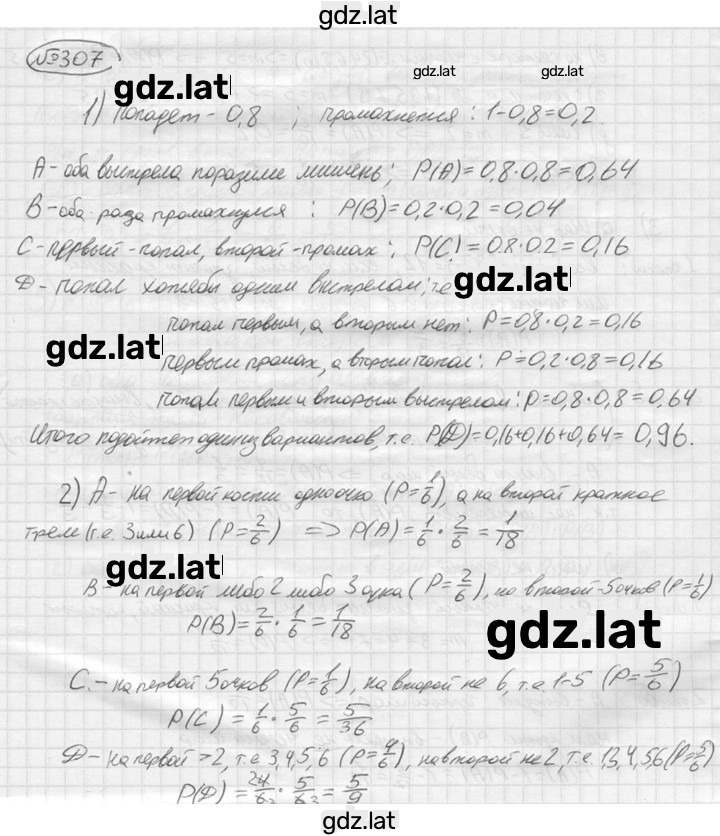 gdz.lat
№307
gdz.lat gdz.lat gdz.lat
1) Попадет - 0,8 ; промахнется : 1-0,8=0,2.
А - оба выстрела поразили мишень; P(A)=0,8·0,8=0,64
В - оба раза промахнулся : P(B)=0,2·0,2=0,04
С - первый - попал, второй - промах; P(C)=0.8·0.2=0,16
Д - попал хотябы одним выстрелом; т.е gdz.lat
попал первым, а вторым нет: P=0,8·0,2=0,16
gdz.lat
первым промах, а вторым попал: P=0,2·0,8=0,16
попал первым и вторым выстрелом: p=0,8·0,8=0,64
Итого подойтет один из вариантов, т.е. P(Д)=0,16+0,16+0,64=0,96.
2) А - на первой кости одно очко (P=1/6), а на второй кратное
треле (т.е. 3 или 6) (P=2/6) => P(A)=1/6·2/6=1/18
gdz.lat
В - на первой либо 2 либо 3 очка (P=2/6), на второй - 5 очков (P=1/6)
P(B)=2/6·1/6=1/18
gdz.lat
С. - на первой 5 очков (P=1/6), на второй не 6, т.е 1-5 (P=5/6)
P(C)=1/6·5/6=5/36
Д - на первой >2, т.е 3,4,5,6 (P=4/6), на второй не 2, т.е 1,3,4,5,6 (P=5/6)
P(Д)=24/63·5/63=5/9
gdz.lat